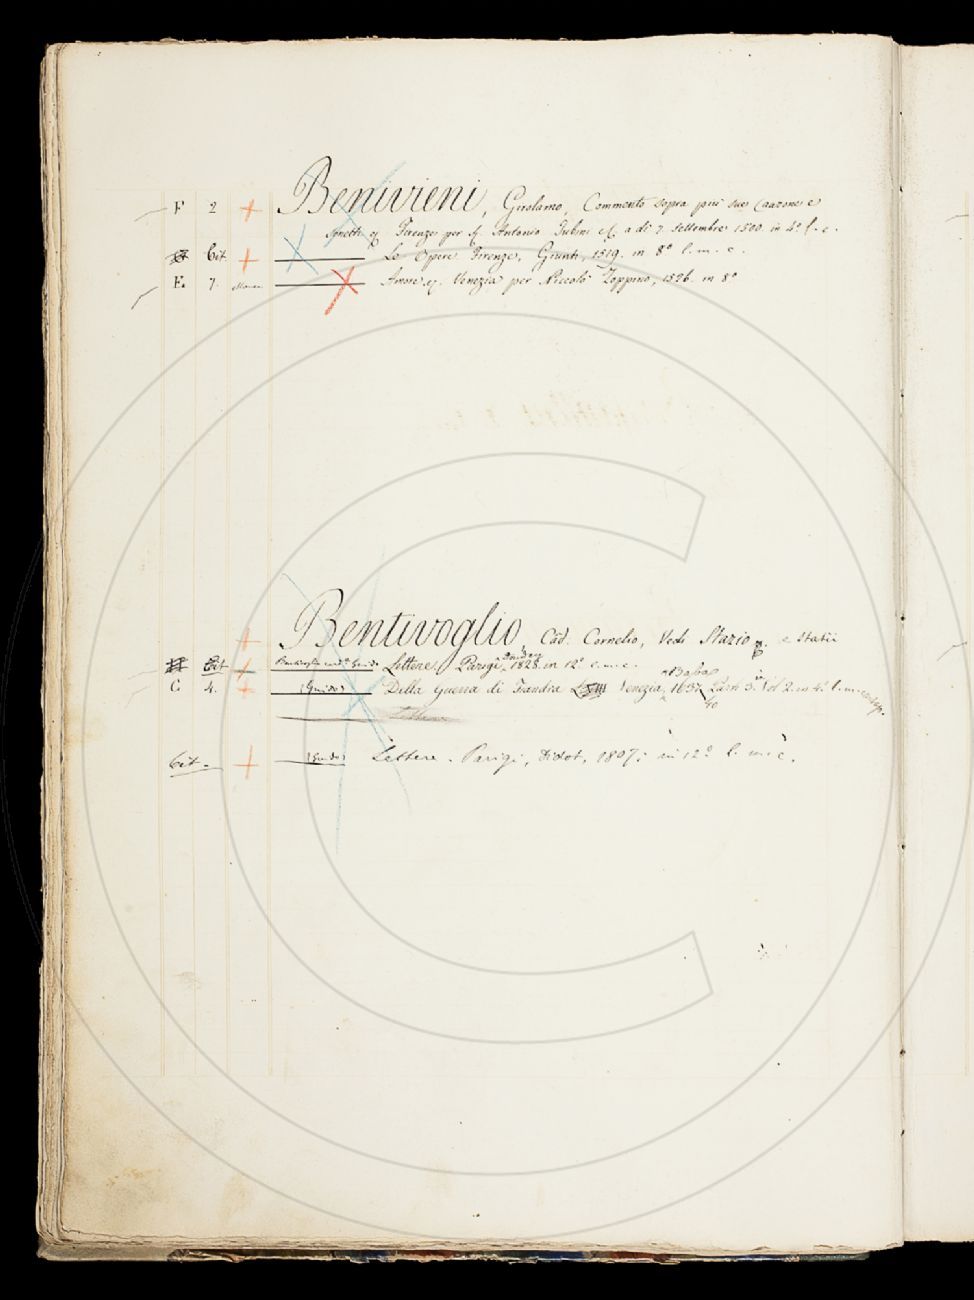 F 2 + Benivieni, Girolamo, Commento sopra più sue Canzone e
Sonetti Firenze per Antonio Tubini a dì 7. Settembre 1500. in 4° l. c.
Cit + Le Opere Firenze, Giunti, 1519. in 8° l. m. c.
E 7. Manca Amore Venezia per Niccolò Zoppino, 1526. in 8°
+ Bentivoglio Cad. Cornelio, Vedi Stazio e Statii
Cit + Bentivoglio card. Guido Lettere, Parigi, 1828. in 12° l. m. c.
C 4. + (Guido) Della Guerra di Fiandra Venezia, 1637 Parti 3. in Vol 2. in 4° l. m.
40
Cit. + (Guido) Lettere. Parigi, Didot, 1807; in 12° l. m. c.